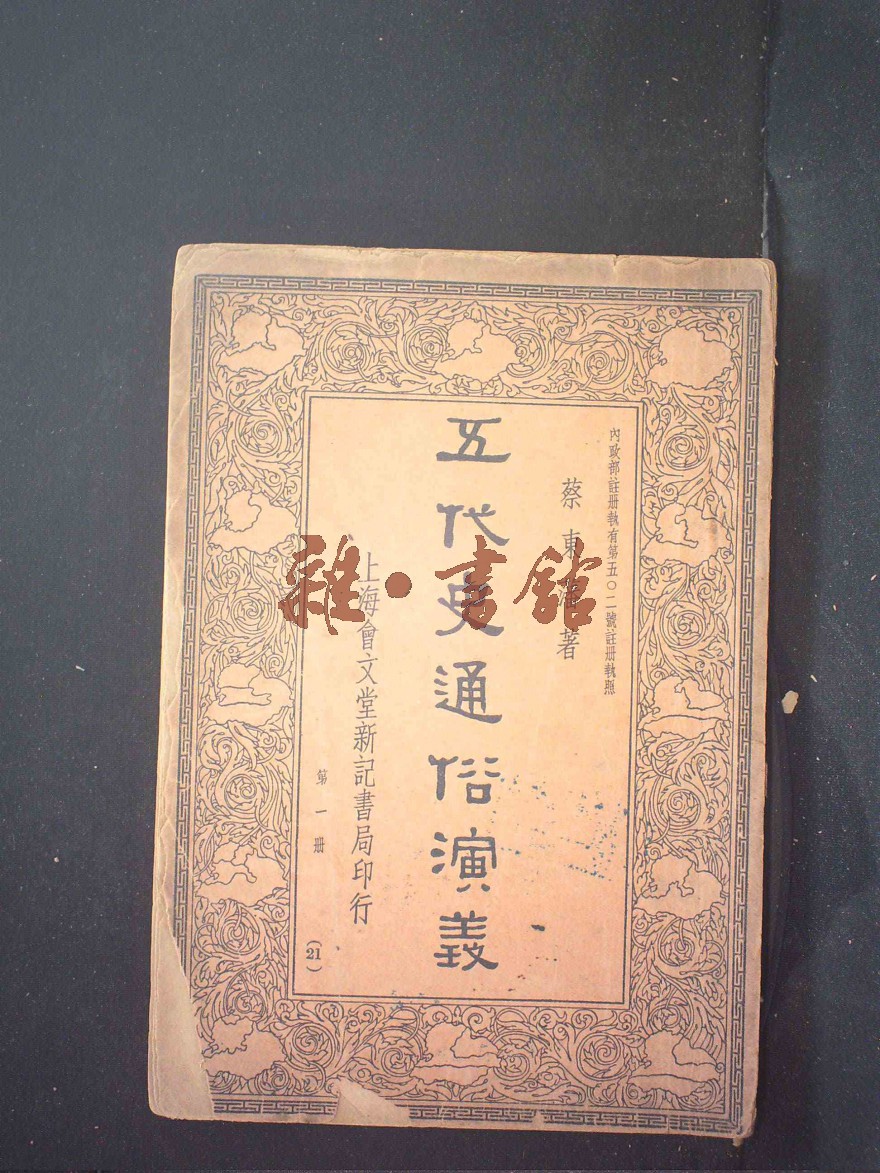 內政部註册執有第五〇二號註册執照
蔡東藩著
五代史通俗演義
上海會文堂新記書局印行
第一册
(21)
雜·書館